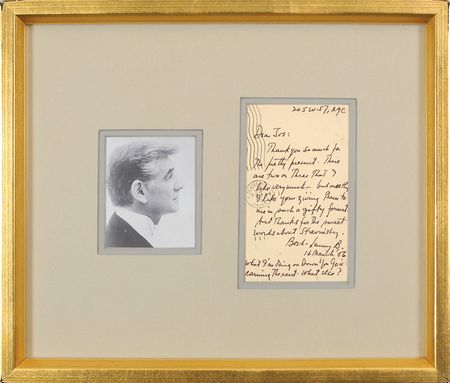 205 W. 57, NYC
Dear Jos:
Thank you so much for
the pretty present. There
are two or three that I
like very much - but mostly
I like you giving them to
me in such a gifty format
but thanks for the sweet
words about Stravinsky.
Best - Lenny B.
16 March '56
What I'm doing on Down You Go is
earning the rent. What else?